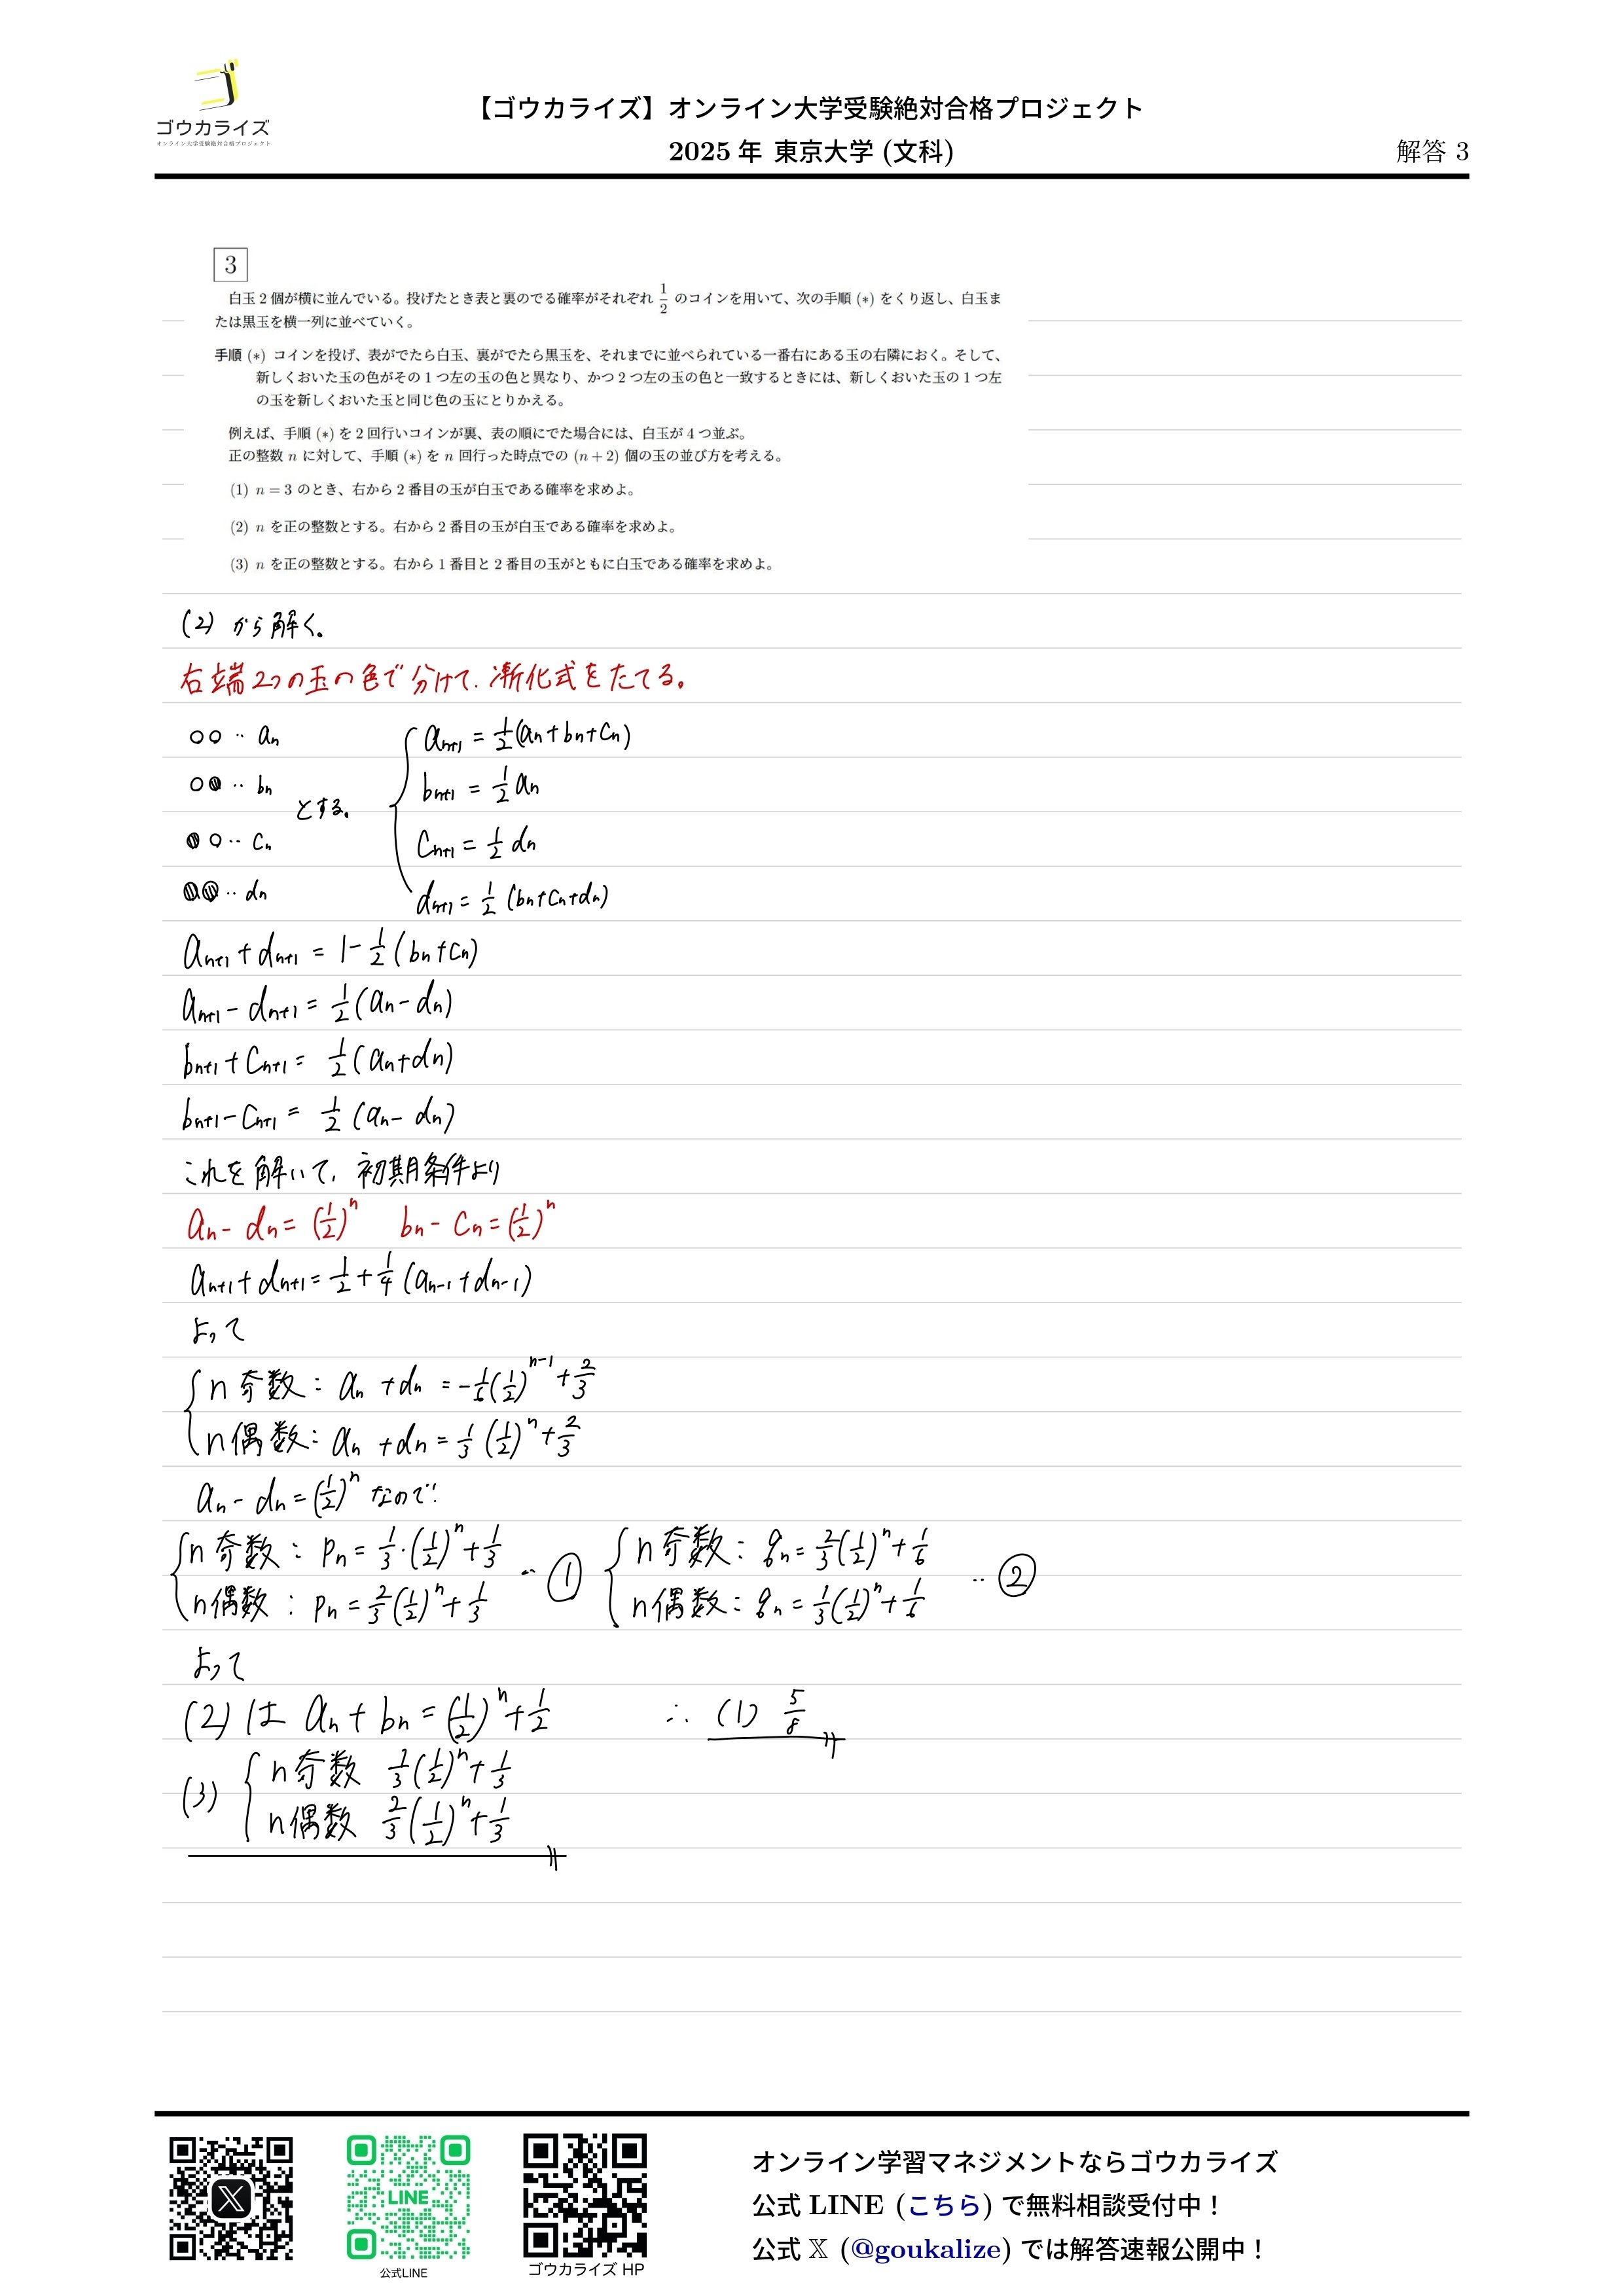 ゴウカライズ
オンライン大学受験絶対合格プロジェクト
【ゴウカライズ】オンライン大学受験絶対合格プロジェクト
2025 年 東京大学 (文科)
解答 3
3
白玉 2 個が横に並んでいる。投げたとき表と裏のでる確率がそれぞれ 1/2 のコインを用いて、次の手順 (*) をくり返し、白玉ま
たは黒玉を横一列に並べていく。
手順 (*) コインを投げ、表がでたら白玉、裏がでたら黒玉を、それまでに並べられている一番右にある玉の右隣におく。そして、
新しくおいた玉の色がその 1 つ左の玉の色と異なり、かつ 2 つ左の玉の色と一致するときには、新しくおいた玉の 1 つ左
の玉を新しくおいた玉と同じ色の玉にとりかえる。
例えば、手順 (*) を 2 回行いコインが裏、表の順にでた場合には、白玉が 4 つ並ぶ。
正の整数 n に対して、手順 (*) を n 回行った時点での (n + 2) 個の玉の並び方を考える。
(1) n = 3 のとき、右から 2 番目の玉が白玉である確率を求めよ。
(2) n を正の整数とする。右から 2 番目の玉が白玉である確率を求めよ。
(3) n を正の整数とする。右から 1 番目と 2 番目の玉がともに白玉である確率を求めよ。
(2) から解く。
右端2つの玉の色で分けて、漸化式をたてる。
○○ ‥ an
○● ‥ bn
●○ ‥ cn
●● ‥ dn
とする。
an+1 = 1/2(an+bn+cn)
bn+1 = 1/2 an
cn+1 = 1/2 dn
dn+1 = 1/2 (bn+cn+dn)
an+1 + dn+1 = 1 - 1/2 (bn+cn)
an+1 - dn+1 = 1/2 (an - dn)
bn+1 + cn+1 = 1/2 (an+dn)
bn+1 - cn+1 = 1/2 (an - dn)
これを解いて、初期条件より
an - dn = (1/2)^n bn - cn = (1/2)^n
an+1 + dn+1 = 1/2 + 1/4 (an-1 + dn-1)
よって
n 奇数 : an + dn = -1/6 (1/2)^n-1 + 2/3
n 偶数 : an + dn = 1/3 (1/2)^n + 2/3
an - dn = (1/2)^n なので
n 奇数 : pn = 1/3・(1/2)^n + 1/3
n 偶数 : pn = 2/3 (1/2)^n + 1/3
‥ ①
n 奇数 : qn = 2/3 (1/2)^n + 1/6
n 偶数 : qn = 1/3 (1/2)^n + 1/6
‥ ②
よって
(2) は an + bn = (1/2)^n + 1/2 ∴ (1) 5/8
(3)
n 奇数 (1/2)^n + 1/3
n 偶数 2/3 (1/2)^n + 1/3
LINE
公式LINE
ゴウカライズ HP
オンライン学習マネジメントならゴウカライズ
公式 LINE (こちら) で無料相談受付中！
公式 𝕏 (@goukalize) では解答速報公開中！